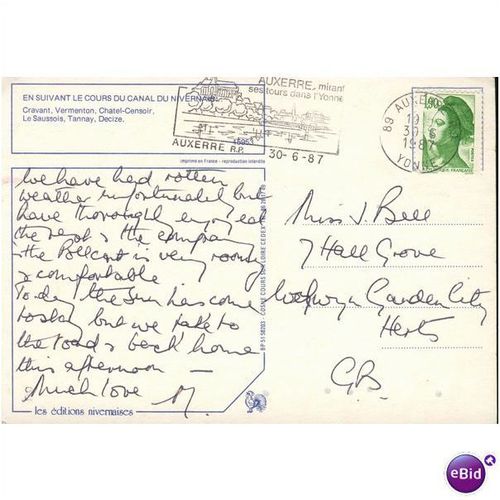 EN SUIVANT LE COURS DU CANAL DU NIVERNAIS
Cravant, Vermenton, Chatel-Censoir,
Le Saussois, Tannay, Decize.
AUXERRE, mirant
ses tours dans l'Yonne
AUXERRE R.P.
30-6-87
89 AUXERRE
19
30-6
1987
YONNE
1,90
imprimé en France - reproduction interdite
We have had rotten
weather unfortunately but
have thoroughly enjoyed
the rest & the company
the is very roomy
& comfortable
Today the sun has come
to stay but we take to
the road & back home
this afternoon —
Much love M.
Miss J. Bell
7 Hall Grove
Welwyn Garden City
Herts
GB
les éditions nivernaises
eBid